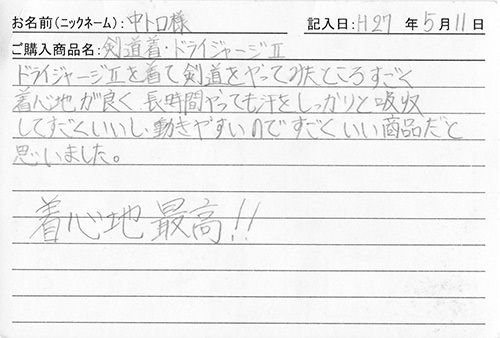 お名前(ニックネーム):中トロ様 記入日:H27 年 5月11日
ご購入商品名:剣道着・ドライジャージⅡ
ドライジャージⅡを着て剣道をやってみたところすごく
着心地が良く、長時間やっても汗をしっかりと吸収
してすごくいいし、動きやすいのですごくいい商品だと
思いました。
着心地最高!!